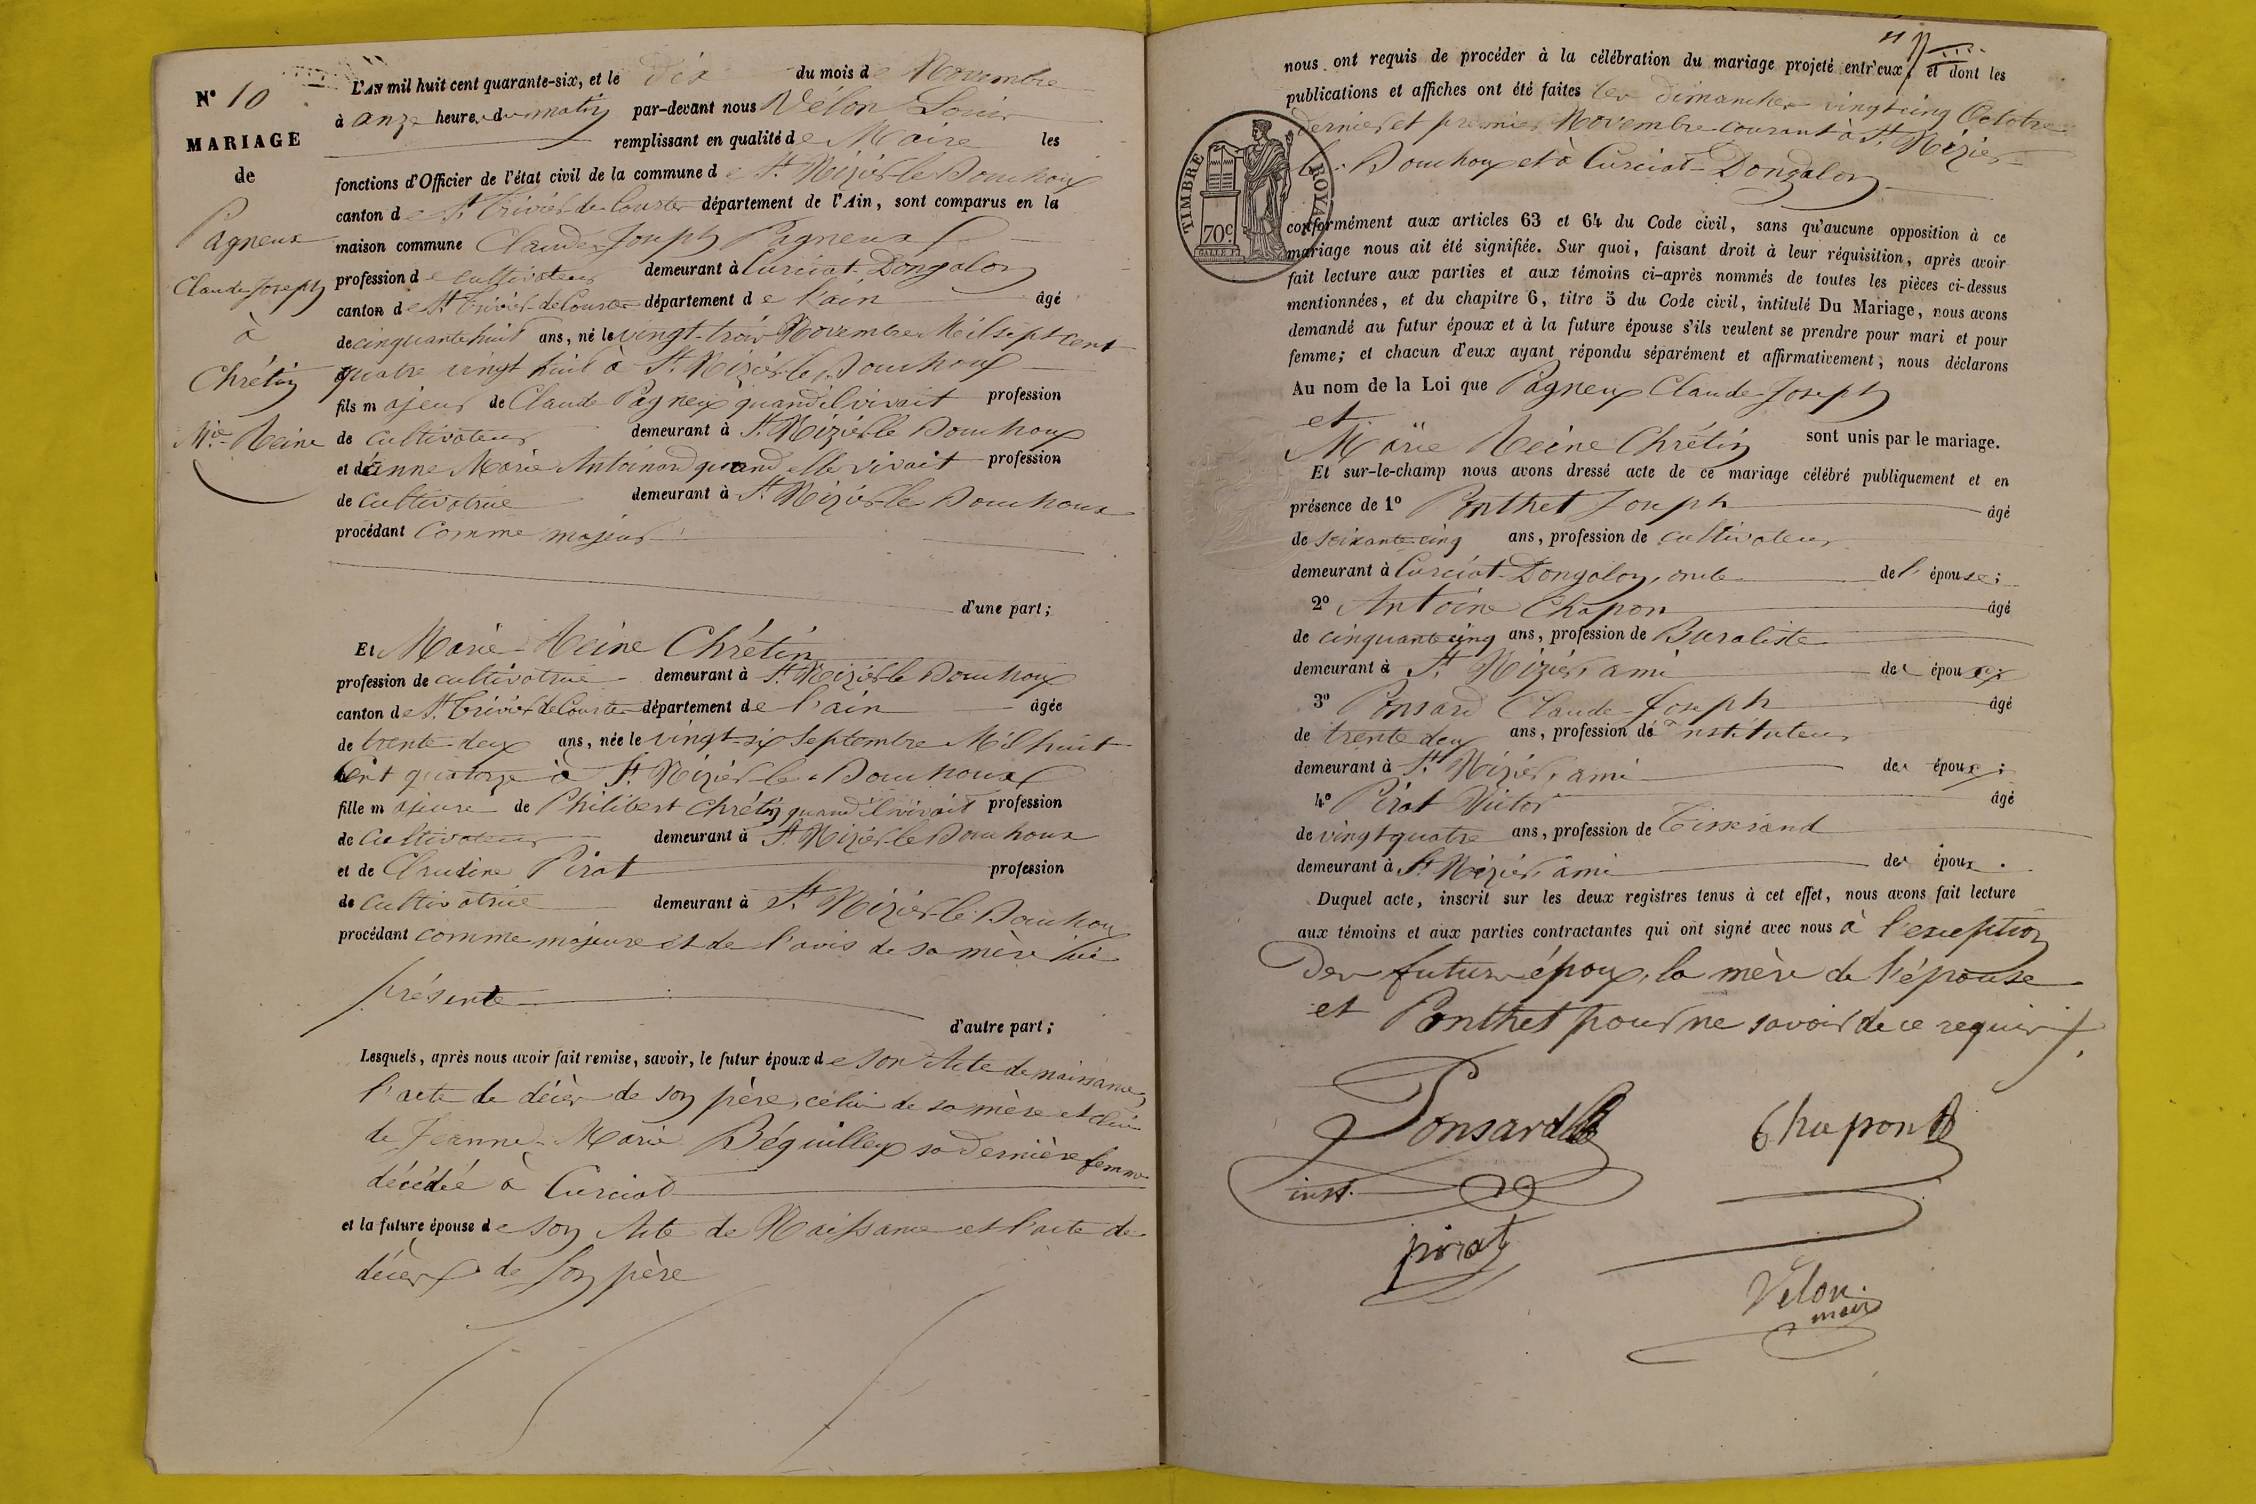 N° 10
MARIAGE
de
Pagneux
Claude Joseph
à
Chrétin
Mie Reine
L'AN mil huit cent quarante-six, et le dix du mois de Novembre
à onze heures du matin par-devant nous Vélon Louis
remplissant en qualité de Maire les
fonctions d'Officier de l'état civil de la commune de St. Nizier-le-Bouchoux
canton de St. Trivier-de-Courtes département de l'Ain, sont comparus en la
maison commune Claude-Joseph Pagneux
profession de cultivateur demeurant à Curciat-Dongalon
canton de St. Trivier-de-Courtes département de l'ain âgé
de cinquante huit ans, né le vingt-trois Novembre Mil sept cent
quatre vingt huit à St. Nizier-le-Bouchoux
fils majeur de Claude Pagneux quand il vivait profession
de cultivateur demeurant à St. Nizier-le Bouchoux
et de anne Marie Antoinard quand elle vivait profession
de cultivatrice demeurant à St. Nizier-le Bouchoux
procédant comme majeur
d'une part;
Et Marie-Reine Chrétin
profession de cultivatrice demeurant à St. Nizier-le Bouchoux
canton de St. Trivier de Courtes département de l'ain âgée
de trente-deux ans, née le vingt-six Septembre Mil huit
cent quatorze à St. Nizier-le-Bouchoux
fille majeure de Philibert Chrétin quand il vivait profession
de Cultivateur demeurant à St. Nizier-le Bouchoux
et de Claudine Pirat profession
de cultivatrice demeurant à St. Nizier-le-Bouchoux
procédant comme majeure et de l'avis de sa mère ici
présente
d'autre part;
Lesquels, après nous avoir fait remise, savoir, le futur époux de son Acte de naissance,
l'acte de décès de son père, celui de sa mère et celui
de Jeanne-Marie Béguilleux sa dernière femme
décédée à Curciat
et la future épouse de son Acte de Naissance et l'acte de
décès de son père
11
nous ont requis de procéder à la célébration du mariage projeté entr'eux, et dont les
publications et affiches ont été faites les dimanches vingt cinq Octobre
dernier et premier Novembre courant à St. Nizier-
le-Bouchoux et à Curciat-Dongalon
TIMBRE ROYAL
70c
conformément aux articles 63 et 64 du Code civil, sans qu'aucune opposition à ce
mariage nous ait été signifiée. Sur quoi, faisant droit à leur réquisition, après avoir
fait lecture aux parties et aux témoins ci-après nommés de toutes les pièces ci-dessus
mentionnées, et du chapitre 6, titre 5 du Code civil, intitulé Du Mariage, nous avons
demandé au futur époux et à la future épouse s'ils veulent se prendre pour mari et pour
femme; et chacun d'eux ayant répondu séparément et affirmativement, nous déclarons
Au nom de la Loi que Pagneux Claude-Joseph
et
Marie Reine Chrétin sont unis par le mariage.
Et sur-le-champ nous avons dressé acte de ce mariage célébré publiquement et en
présence de 1° Ponthet Joseph âgé
de soixante cinq ans, profession de cultivateur
demeurant à Curciat-Dongalon, oncle de l'épouse;
2° Antoine Chapon âgé
de cinquante cinq ans, profession de Buraliste
demeurant à St. Nizier, ami des époux;
3° Ponsard Claude-Joseph âgé
de trente deux ans, profession dé Instituteur
demeurant à St. Nizier, ami des époux;
4° Pirat Victor âgé
de vingt quatre ans, profession de Tisserand
demeurant à St. Nizier, ami des époux.
Duquel acte, inscrit sur les deux registres tenus à cet effet, nous avons fait lecture
aux témoins et aux parties contractantes qui ont signé avec nous à l'exception
Des futurs époux, la mère de l'épouse
et Ponthet pour ne savoir de ce requis
Ponsard
Chapon
inst.
pirat
Vélon
maire